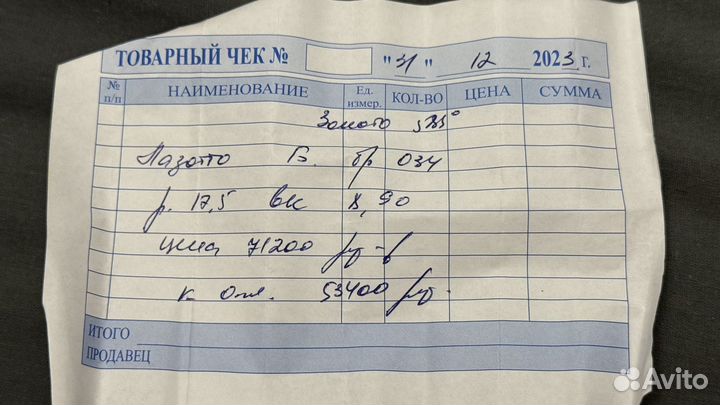 ТОВАРНЫЙ ЧЕК № "31" 12 2023 г.
№ п/п НАИМЕНОВАНИЕ Ед. измер. КОЛ-ВО ЦЕНА СУММА
Золото 585°
Б. бр 034
р. 17,5 вес 8,90
цена 71200 руб
к опл. 53400 руб.
ИТОГО
ПРОДАВЕЦ
Avito